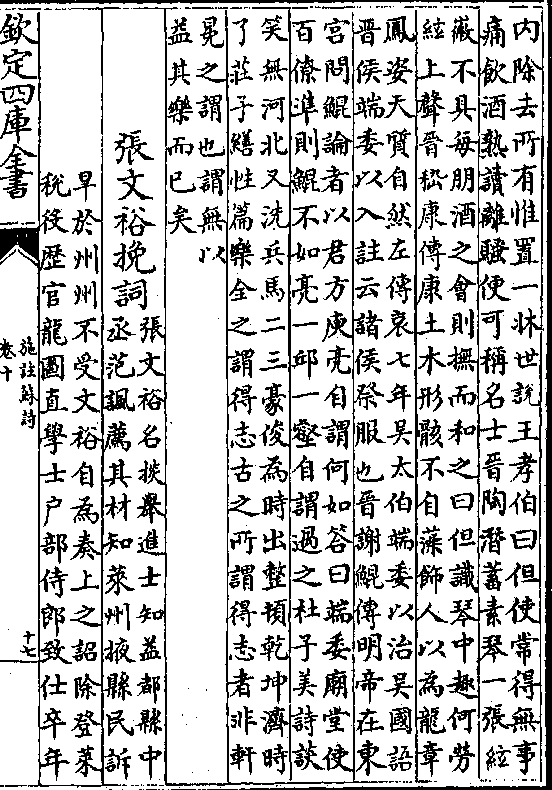 内除去所有惟置一牀世說王孝伯曰但使常得無事
痛飲酒熟讀離騷便可稱名士晉陶潛蓄素琴一張絃
徽不具每朋酒之會則撫而和之曰但識琴中趣何勞
絃上聲晉嵇康傳康土木形骸不自藻飾人以為龍章
鳳姿天質自然左傳哀七年吳太伯端委以治吳國語
晉侯端委以入註云諸侯祭服也晉謝鯤傳明帝在東
宮問鯤論者以君方庾亮自謂何如答曰端委廟堂使
百僚準則鯤不如亮一邱一壑自謂過之杜子美詩談
笑無河北又洗兵馬二三豪俊為時出整頓乾坤濟時
了莊子繕性篇樂全之謂得志古之所謂得志者非軒
冕之謂也謂無以
益其樂而已矣
張文裕挽詞
張文裕名掞舉進士知益都縣中
丞范諷薦其材知萊州掖縣民訴
旱於州州不受文裕自為奏上之詔除登萊
稅役歴官龍圖直學士户部侍郎致仕卒年
欽定四庫全書
施註蘇詩
卷十
十七